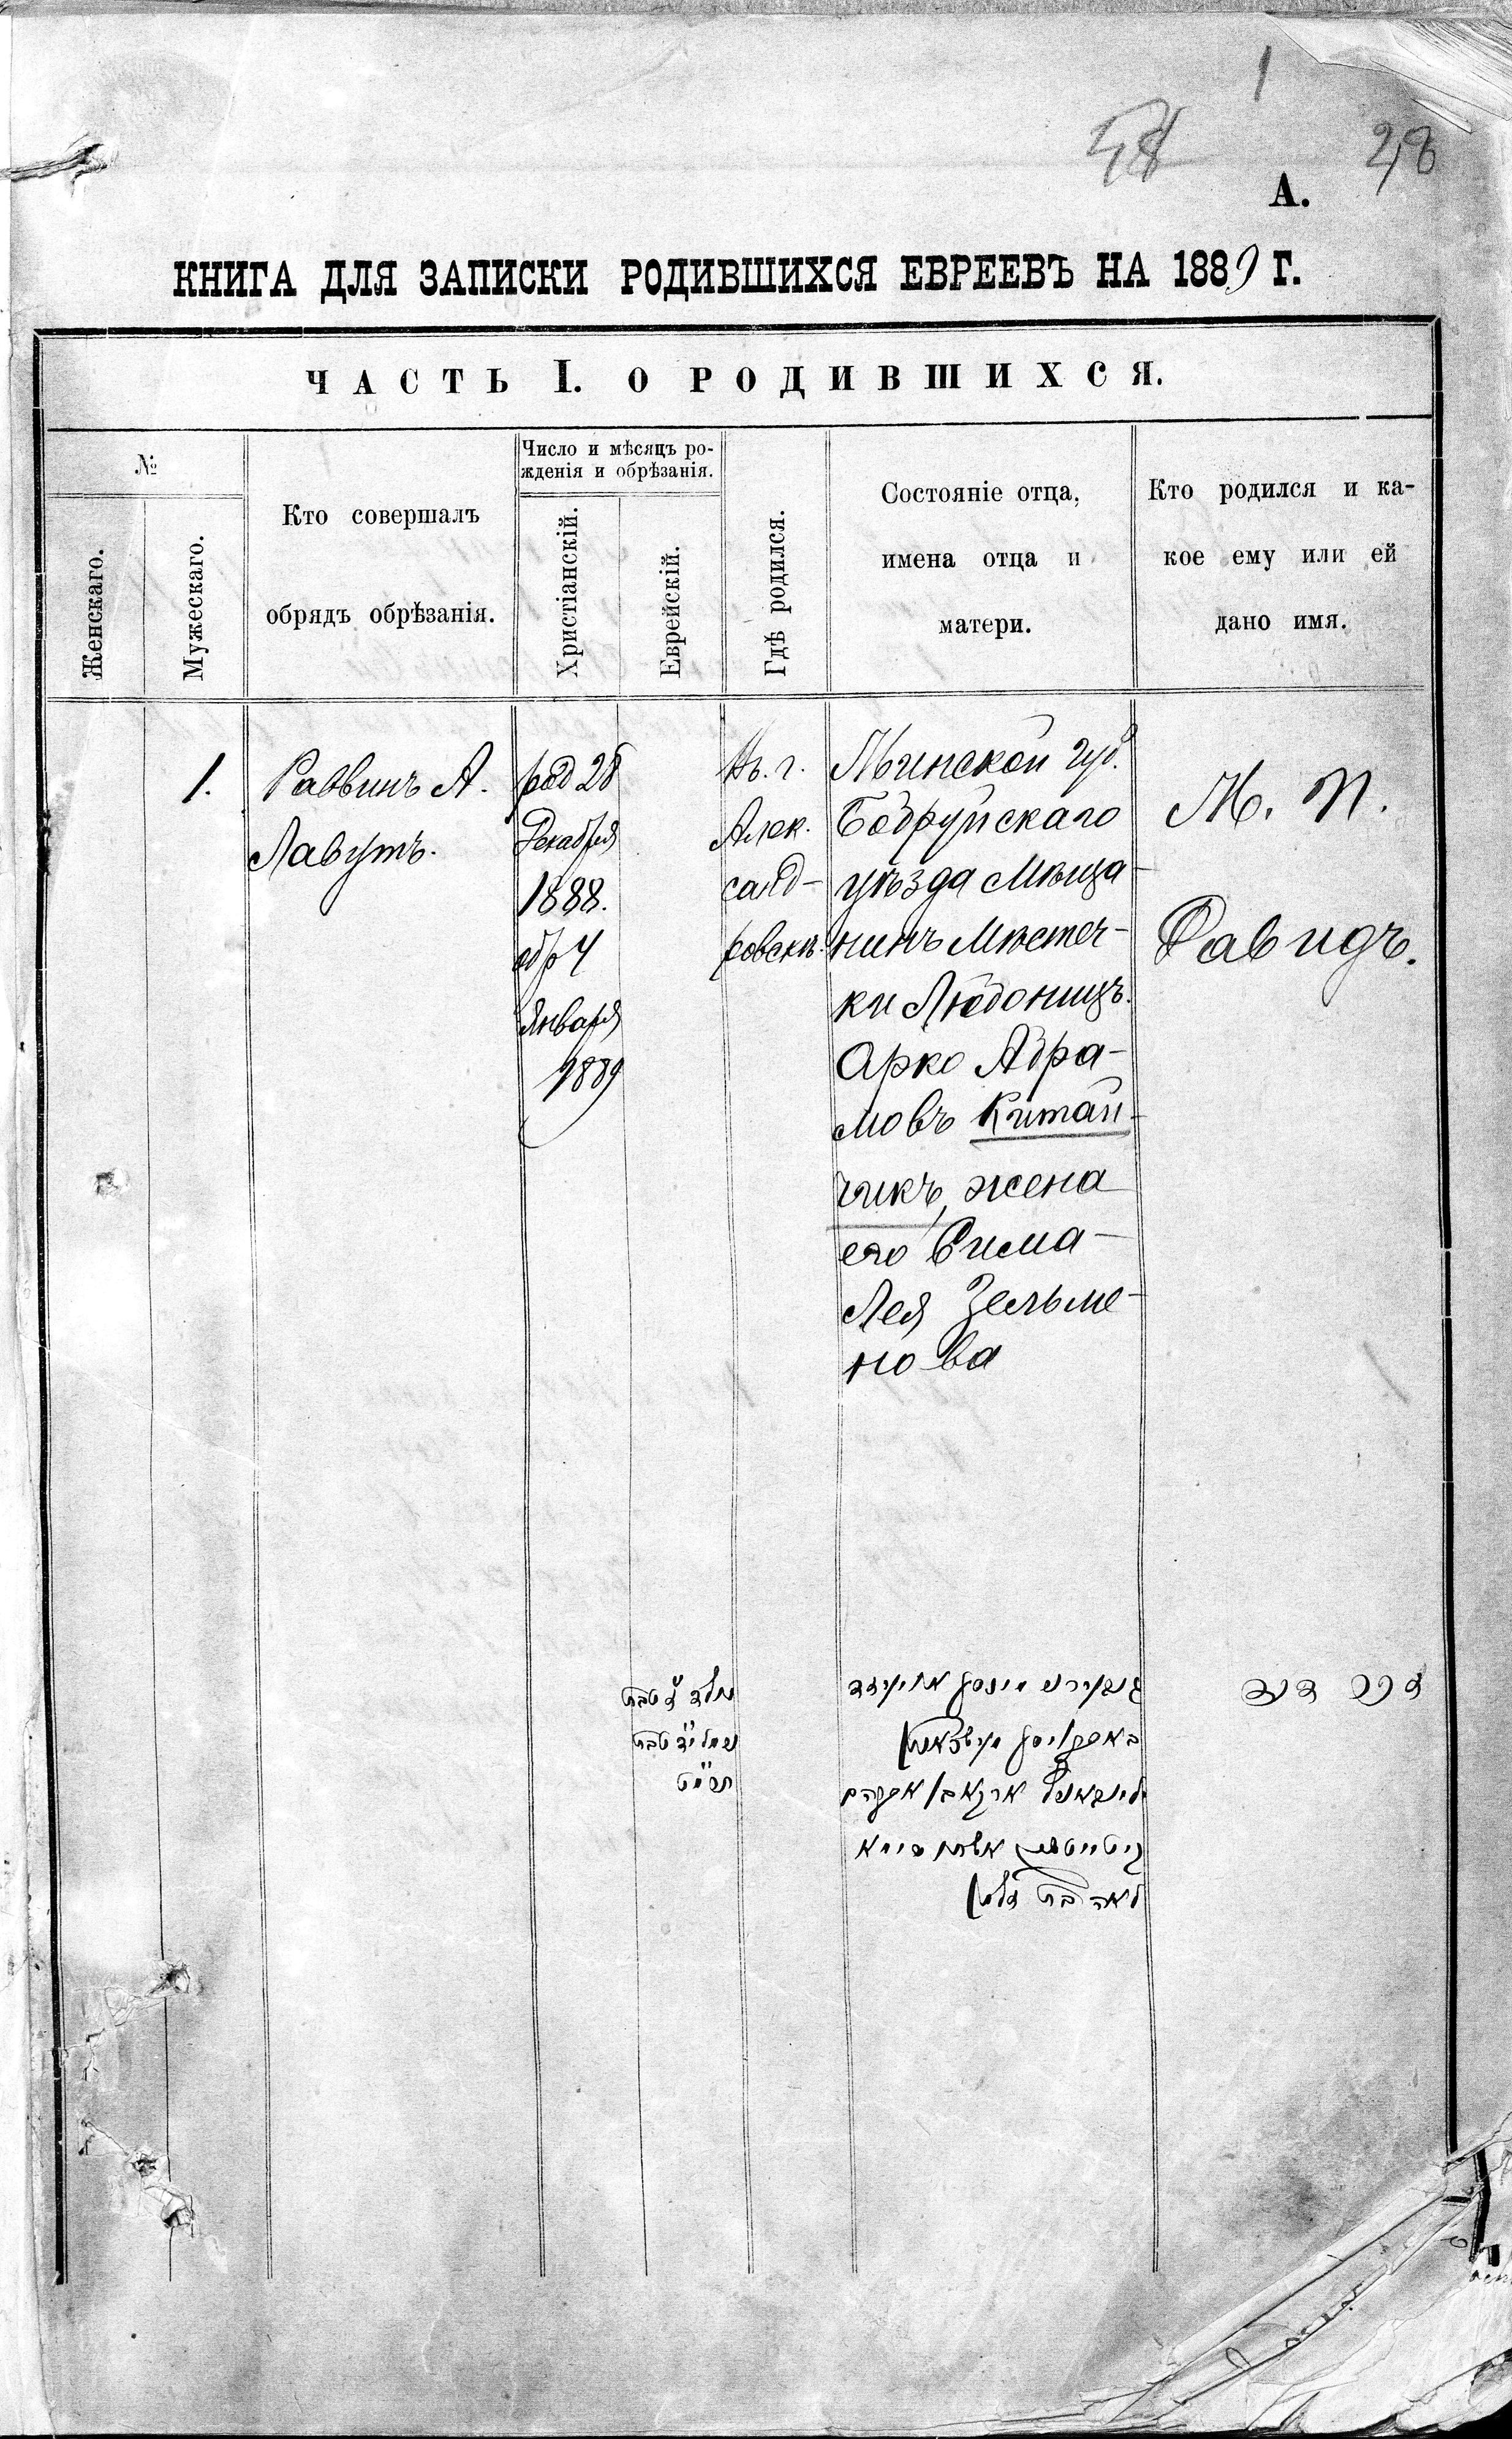 1
28
А.
КНИГА ДЛЯ ЗАПИСКИ РОДИВШИХСЯ ЕВРЕЕВЪ НА 1889 Г.
ЧАСТЬ I. О РОДИВШИХСЯ.
№
Женскаго.
Мужескаго.
Кто совершалъ
обрядъ обрѣзанія.
Число и мѣсяцъ ро-
жденія и обрѣзанія.
Христіанскій.
Еврейскій.
Гдѣ родился.
Состояніе отца,
имена отца и
матери.
Кто родился и ка-
кое ему или ей
дано имя.
1.
Раввинъ А.
Лавутъ.
род 28
Декабря
1888.
обр 4
Января
1889
Въ. г.
Алек.
санд-
ровскѣ.
Минской губ.
Бобруйскаго
уѣзда Мѣща-
нинъ Мѣстеч-
ки Любоницъ.
Арко Абра-
мовъ Китай-
чикъ, жена
его Сима-
Лея Зельме-
нова
М. П.
Давидъ.
נולד ז טבת
נימול י״ד טבת
תרמ״ט
לאה בת זלמן
זכר דוד